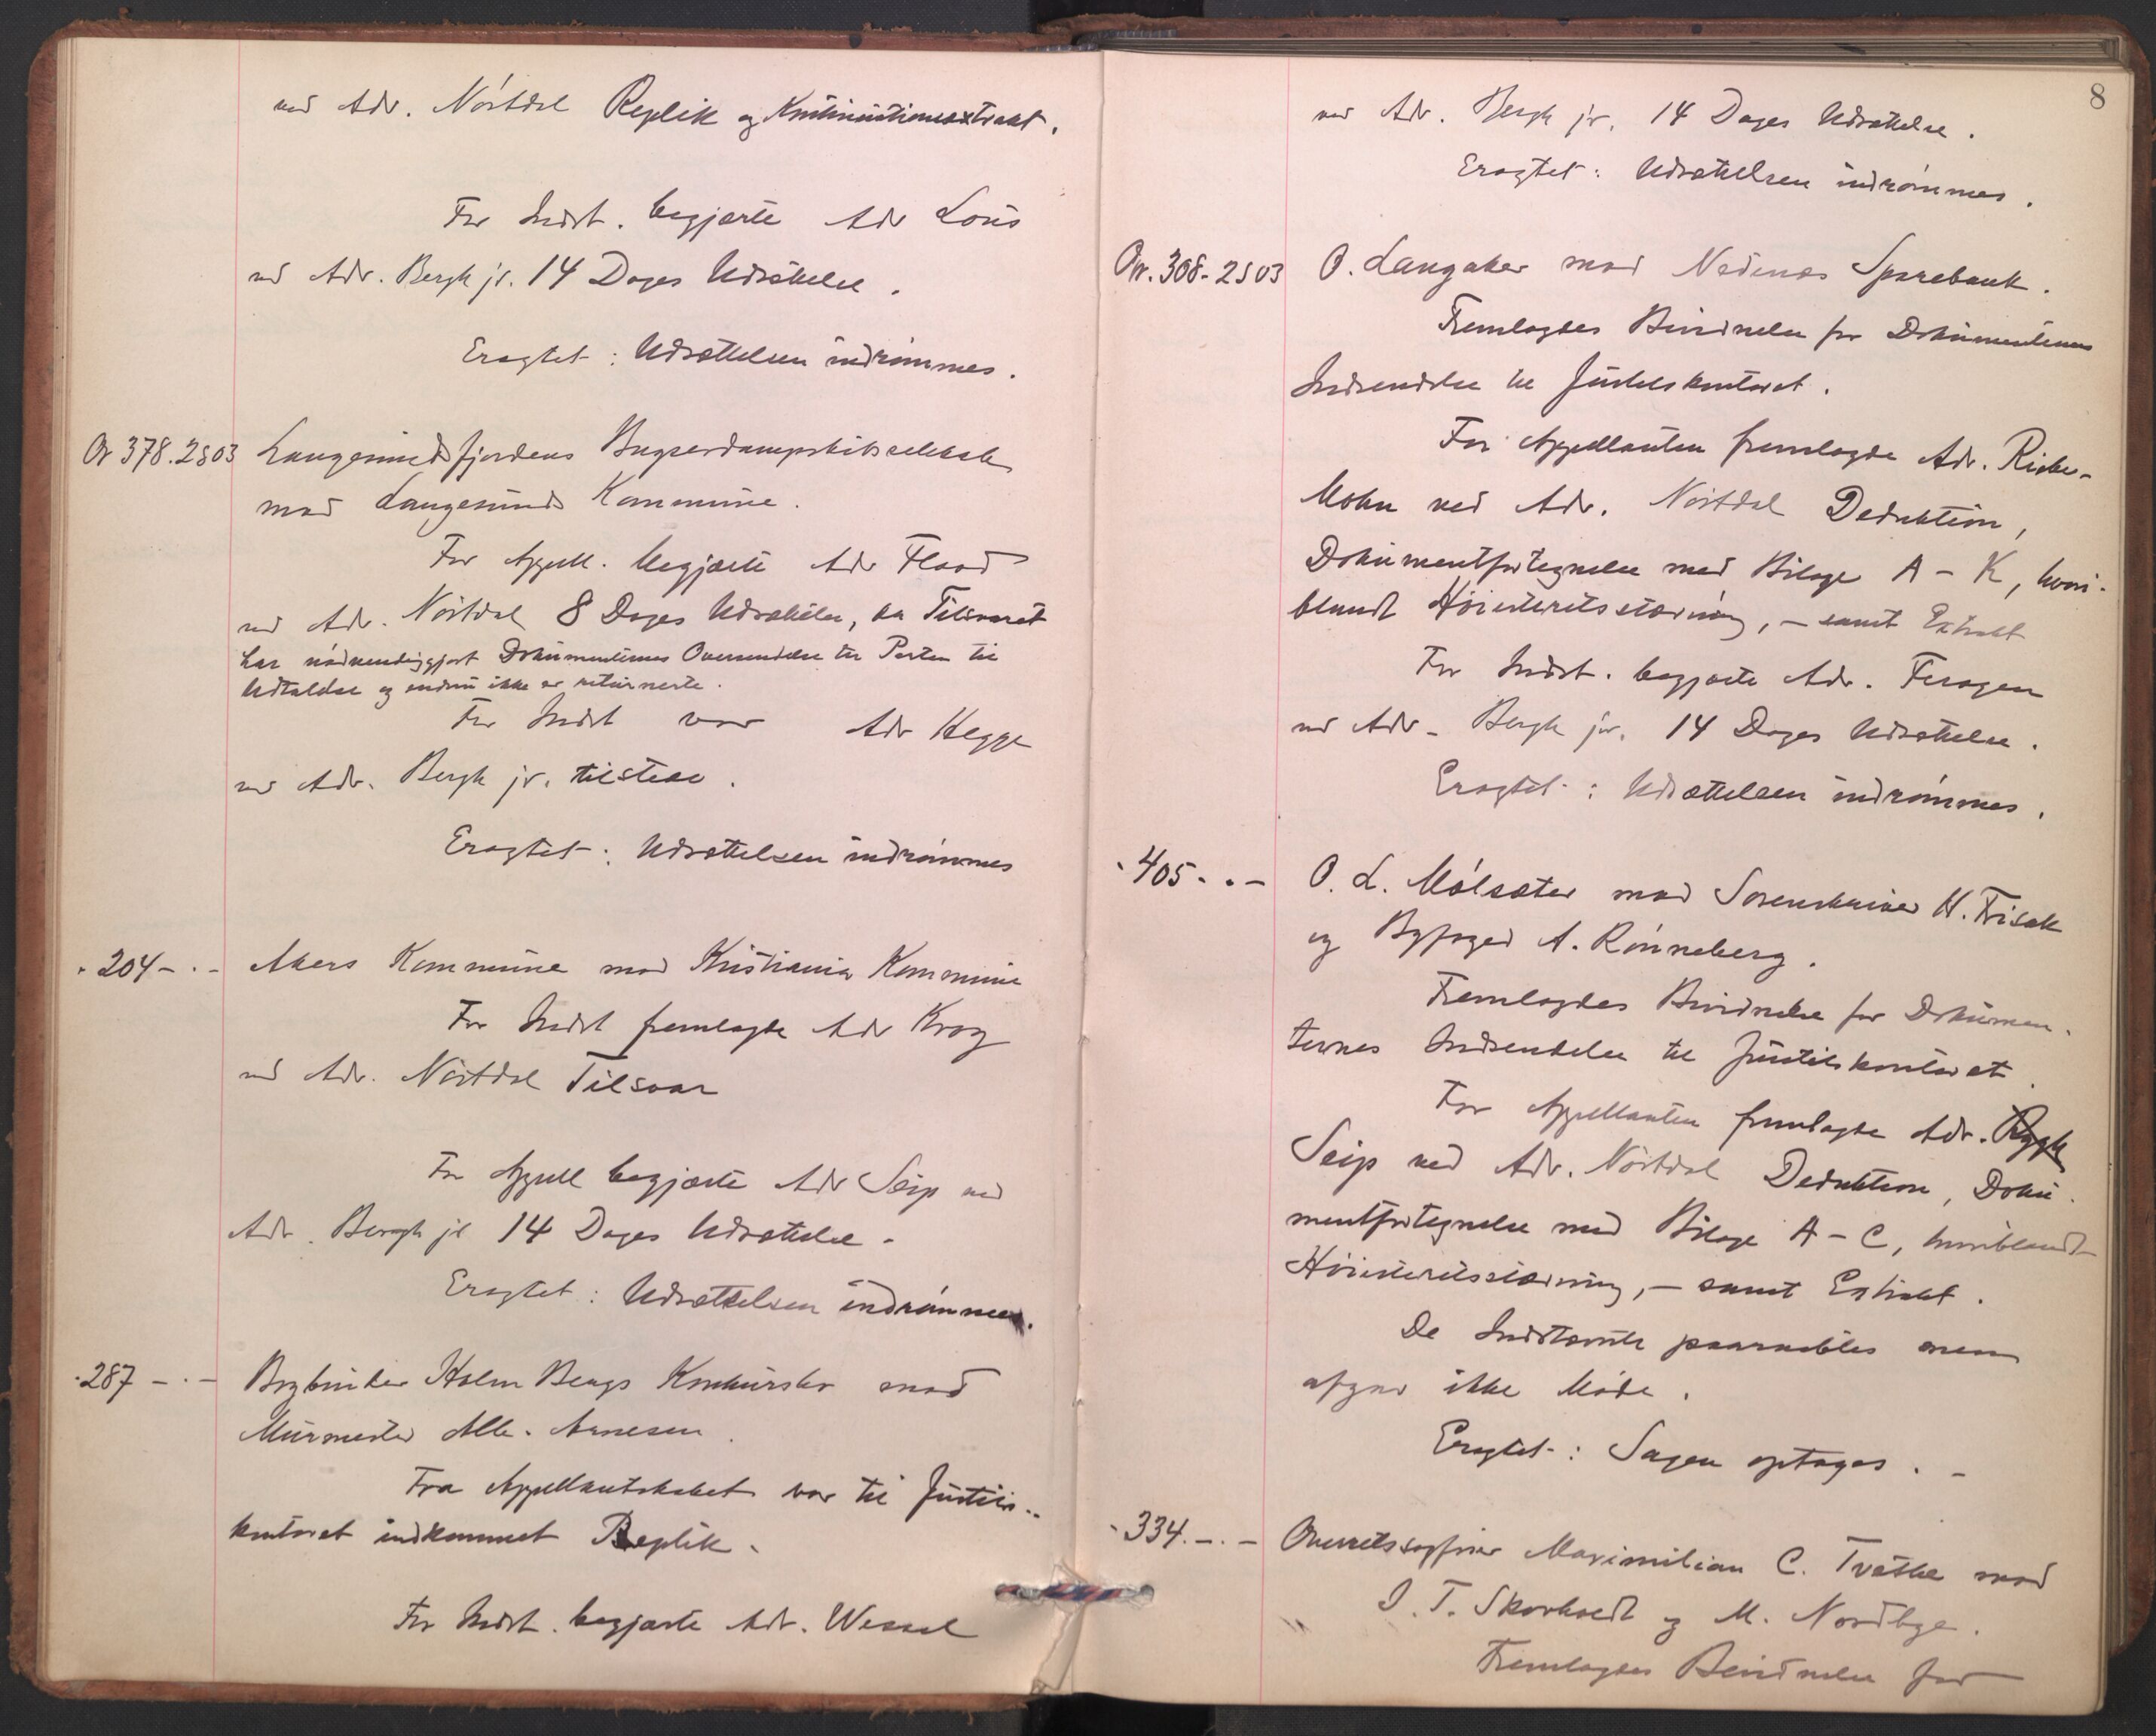 ved Adv. Nørtdal Replik og Kontinuationsextrakt.
For Indst. begjærte Adv Lous
ved Adv. Bergh jr. 14 Dages Udsættelse.
Eragtet: Udsættelsen indrømmes.
Or 378.2S03 Langesundsfjordens Bugserdampskibsselskab
mod Langesunds Kommune.
For Appell. begjærte Adv Flood
ved Adv. Nørtdal 8 Dages Udsættelse, da Tilsvaret
har nødvendiggjort Dokumenternes Oversendelse til Parten til
Udtalelse og endnu ikke er returnerte.
For Indst var Adv Hegge
ved Adv. Bergh jr. tilstede.
Eragtet: Udsættelsen indrømmes
" 204 - " - Akers Kommune mod Kristiania Kommune
For Indst fremlagde Adv Krog
ved Adv. Nørtdal Tilsvar
For Appell begjærte Adv Seip ved
Adv. Bergh jr 14 Dages Udsættelse.
Eragtet: Udsættelsen indrømmes.
" 287 - " - Holm Bergs Konkursbo mod
Murmester Alb. Arnesen.
Fra Appellantskabet var til Justits-
kontoret indkommet Replik.
For Indst. begjærte Adv. Wessel
8
ved Adv. Bergh jr. 14 Dages Udsættelse.
Eragtet: Udsættelsen indrømmes.
Or. 308-2S03 O. Langaker mod Nedenes Sparebank.
Fremlagdes Bevidnelse for Dokumenternes
Indsendelse til Justitskontoret.
For Appellanten fremlagde Adv. Ricber-
Mohn ved Adv. Nørtdal Deduktion,
Dokumentfortegnelse med Bilage A - K, hvori-
blandt Høiesteretsstævning, - samt Extrakt
For Indst. begjærte Adv. Feragen
ved Adv. Bergh jr. 14 Dages Udsættelse.
Eragtet: Udsættelsen indrømmes.
" 405 - " - O. L. Mølsæter mod Sorenskriver H. Frisak
og Byfoged A. Rønneberg.
Fremlagdes Bevidnelse for Dokumen-
ternes Indsendelse til Justitskontoret.
For Appellanten fremlagde Adv.
Seip ved Adv. Nørtdal Deduktion, Doku-
mentfortegnelse med Bilage A - C, hvoriblandt
Høiesteretsstævning, - samt Extrakt.
De Indstævnte paaraabtes men
afgav ikke Møde.
Eragtet: Sagen optages. -
" 334. - " - Overretssagfører Maximilian C. Tvethe mod
I. T. Skovholdt og M. Nordbye.
Fremlagdes Bevidnelse for